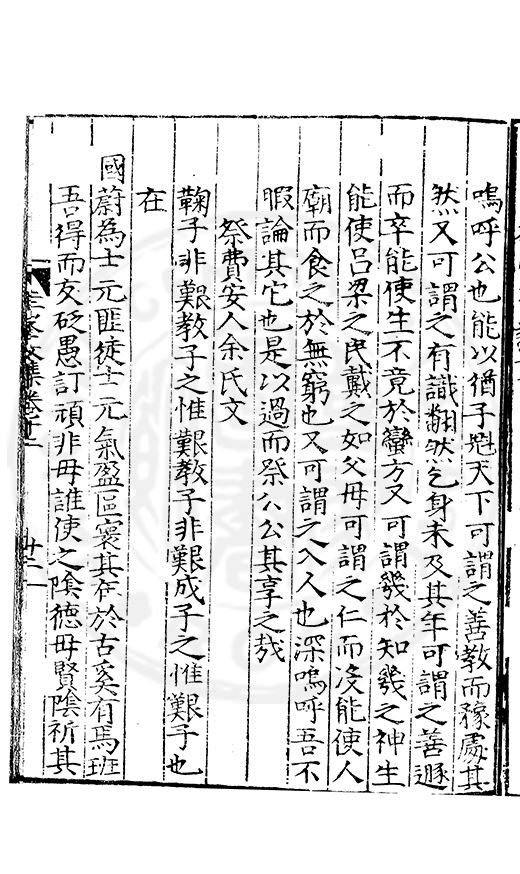 嗚呼公也能以猶子魁天下可謂之善教而豫處其
然又可謂之有識翻然乞身未及其年可謂之善遯
而卒能使生不竟於蠻方又可謂幾於知幾之神生
能使呂梁之民戴之如父母可謂之仁而沒能使人
廟而食之於無窮也又可謂之入人也深嗚呼吾不
暇論其它也是以過而祭公公其享之哉
祭費安人余氏文
鞠子非艱教子之惟艱教子非艱成子之惟艱子也
在
國蔚為士元匪徒士元氣盈區寰其在於古奚有馬班
吾得而友砭愚訂頑非母誰使之陰德母賢陰祈其
文集卷十二